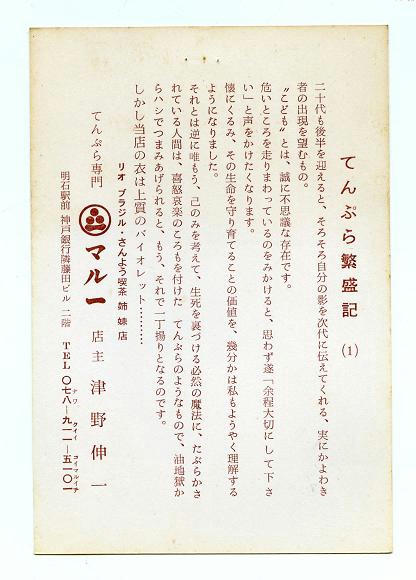 てんぷら繁盛記 (1)
二十代も後半を迎えると、そろそろ自分の影を次代に伝えてくれる、実にかよわき
者の出現を望むもの。
“こども”とは、誠に不思議な存在です。
危いところを走りまわっているのをみかけると、思わず遂「余程大切にして下さ
い」と声をかけたくなります。
懐にくるみ、その生命を守り育てることの価値を、幾分かは私もようやく理解する
ようになりました。
それとは逆に唯もう、己のみを考えて、生死を裏づける必然の魔法に、たぶらかさ
れている人間は、喜怒哀楽のころもを付けた てんぷらのようなもので、油地獄か
らハシでつまみあげられると、もう、それで一丁揚りとなるのです。
しかし当店の衣は上質のバイオレット………
リオ ブラジル・さんよう喫茶 姉妹店
てんぷら専門 マルー 店主 津野伸一
明石駅前 神戸銀行隣藤田ビル 二階 TEL 〇七八―九一一―五一〇一